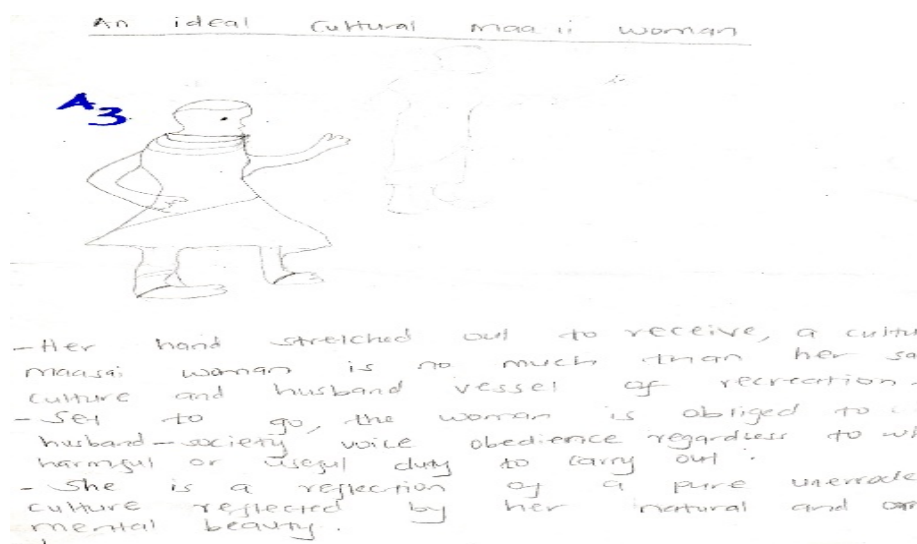 An ideal Cultural Maa ii woman
A3
- Her hand stretched out to receive, a cultu
maasai woman is no much than her sa
culture and husband vessel of recreation.
- Set to go, the woman is obliged to
husband - society voice obedience regardless to wh
harmful or useful duty to carry out.
- She is a reflection of a pure unerrode
culture reflected by her natural and
mental beauty.